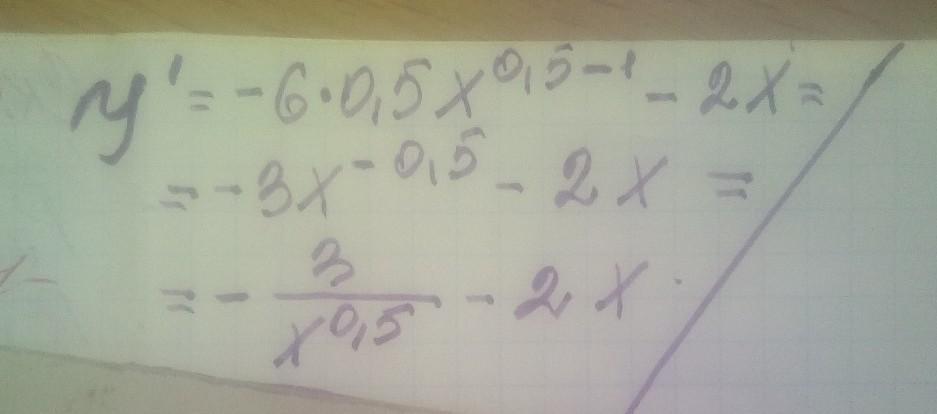 y' = -6·0,5x^{0,5-1} - 2x =
= -3x^{-0,5} - 2x =
= - \frac{3}{x^{0,5}} - 2x.